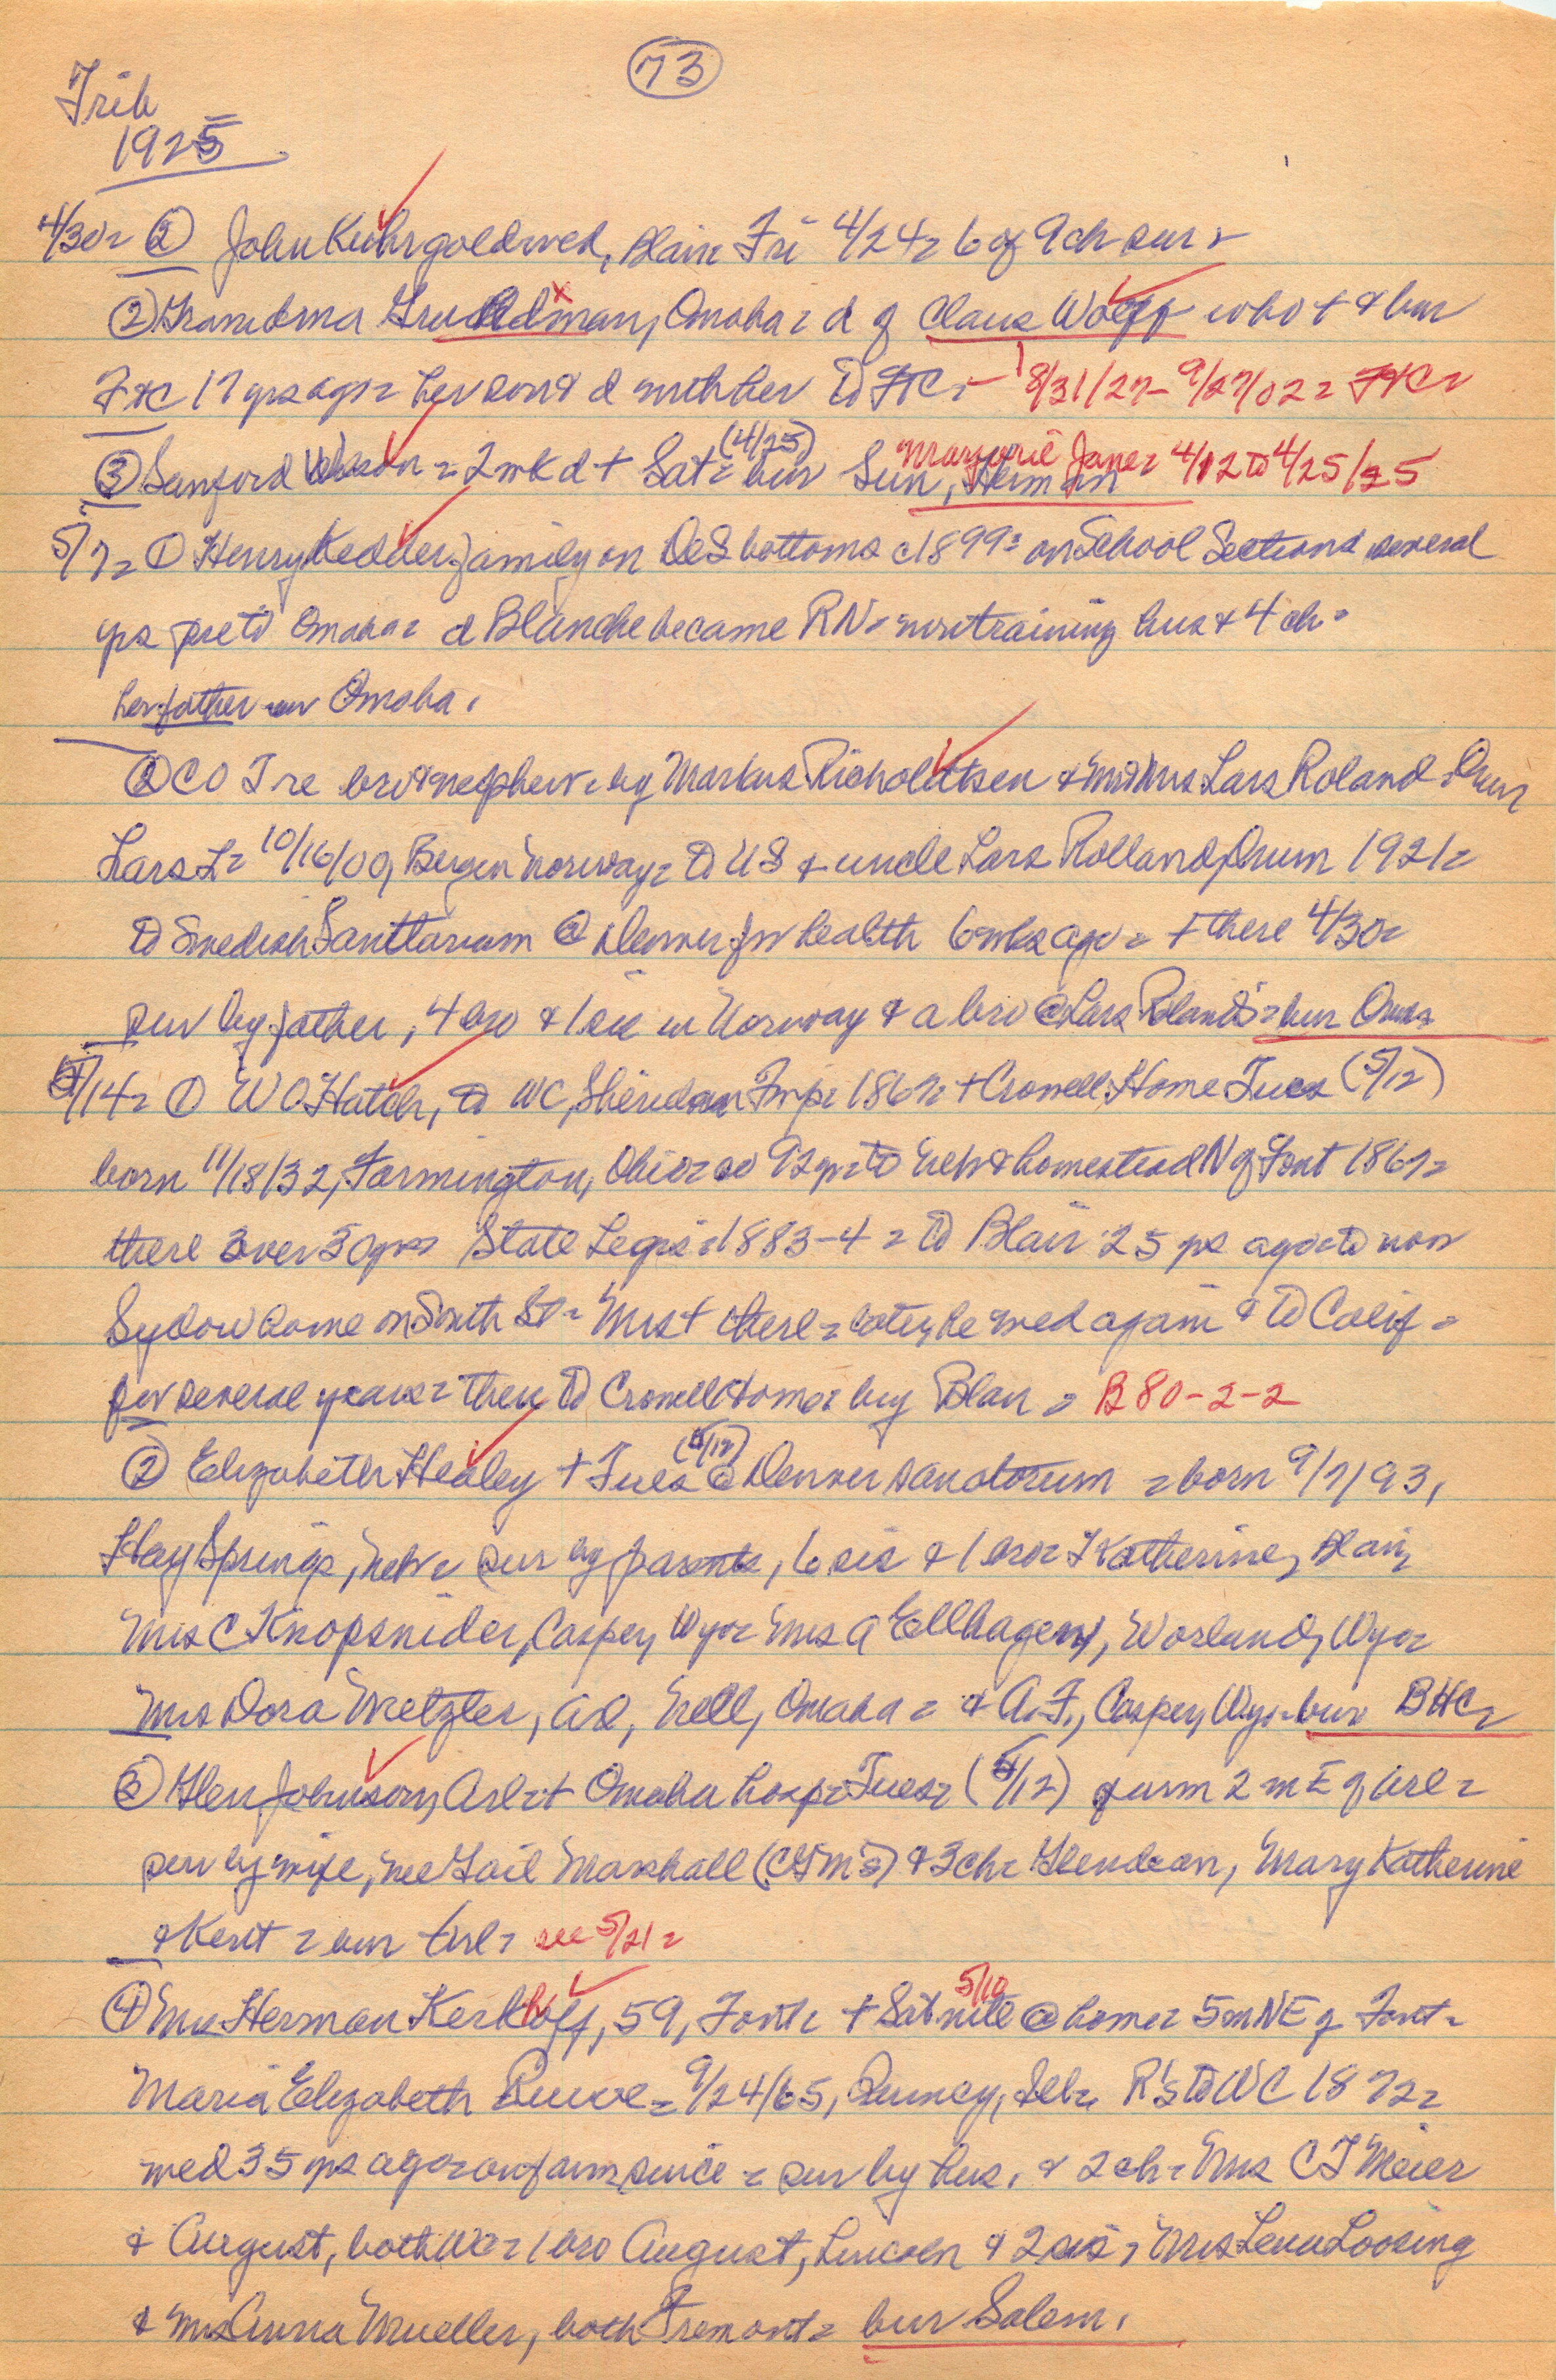 73
Trib
1925
4/30= ② John Kuhr gold wed, Blair Fri 4/24= 6 of 9 ch sur=
② Grandma Omaha= d of Claus Wolff who + & bur
FtC 17 yrs ago= her son & d with her to FtC= 8/31/27- 9/27/02= FtC=
③ Sanford = 2wk d + Sat= (4/25) bur Sun, Herman Marjorie Jane= 4/12 to 4/25/25
5/7= ① Henry Kedder family on DeS bottoms c1899= on School Section several
yrs pre to Omaha= d Blanche became RN= now training hus & 4 ch=
her father in Omaha.
② C O T re bro & nephew= by Markus & Mr & Mrs Lars Roland Orum
Lars L= 10/16/00, Bergen Norway= to US & uncle Lars Rolland, Orum 1921=
to Swedish Sanitarium @ Denver for health 6 wks ago= + there 4/30=
sur by father, 4 bro & 1 sis in Norway & a bro @ Lars Roland's= bur Orum
5/14= ① W O Hatch, to WC, Sheridan Twp= 1867= + Crowell Home Tues (5/12)
born 11/18/32, Farmington, Ohio= so 92 yr= to Neb & homestead N of Font 1867=
there over 30 yrs= State Legis= 1883-4= to Blair 25 yrs ago= to now
Sydow home on South St= Mrs + there= later, he wed again & to Calif=
for several years= then to Crowell Home= by Blair= B80-2-2
② Elizabeth Healey + Tues (5/12) @ Denver sanatorum= born 9/7/93,
Hay Springs, Neb= sur by parents, 6 sis & 1 bro= Katherine, Blair,
Mrs C Knopsnider, Casper, Wyo= Mrs A Ellhagen, Worland, Wyo=
Mrs Dora Metzler, Arl, Nell, Omaha= & A.F., Casper, Wyo= bur BHC=
③ Glen Johnson, Arl= + Omaha hosp= Tues= (5/12) farm 2 m E of Arl=
sur by wife, nee Gail Marshall (CGM's) & 3 ch= Glendean, Mary Katherine
& Kent= bur Arl= see 5/21=
④ Mrs Herman Kerkhoff, 59, Font= + Sat nite 5/10 @ home= 5 m NE of Font=
Maria Elizabeth = 9/24/65, Quincy, Ill= R's to WC 1872=
wed 35 yrs ago= on farm since= sur by hus. & 2 ch= Mrs C J Meier
& August, both WC= 1 bro August, Lincoln & 2 sis, Mrs Lena Loosing
& Mrs Anna Mueller, both Fremont= bur Salem.